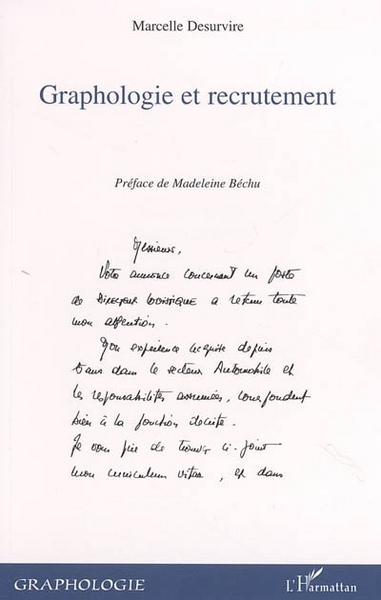 Marcelle Desurvire
Graphologie et recrutement
Préface de Madeleine Béchu
Messieurs,
Votre annonce concernant un poste
de DIRECTEUR LOGISTIQUE a retenu toute
mon attention.
Mon expérience acquise depuis
6 ans dans le secteur Automobile et
les responsabilités assumées, correspondent
bien à la fonction décrite.
Je vous prie de trouver ci-joint
mon curriculum vitae, et dans
GRAPHOLOGIE
L'Harmattan